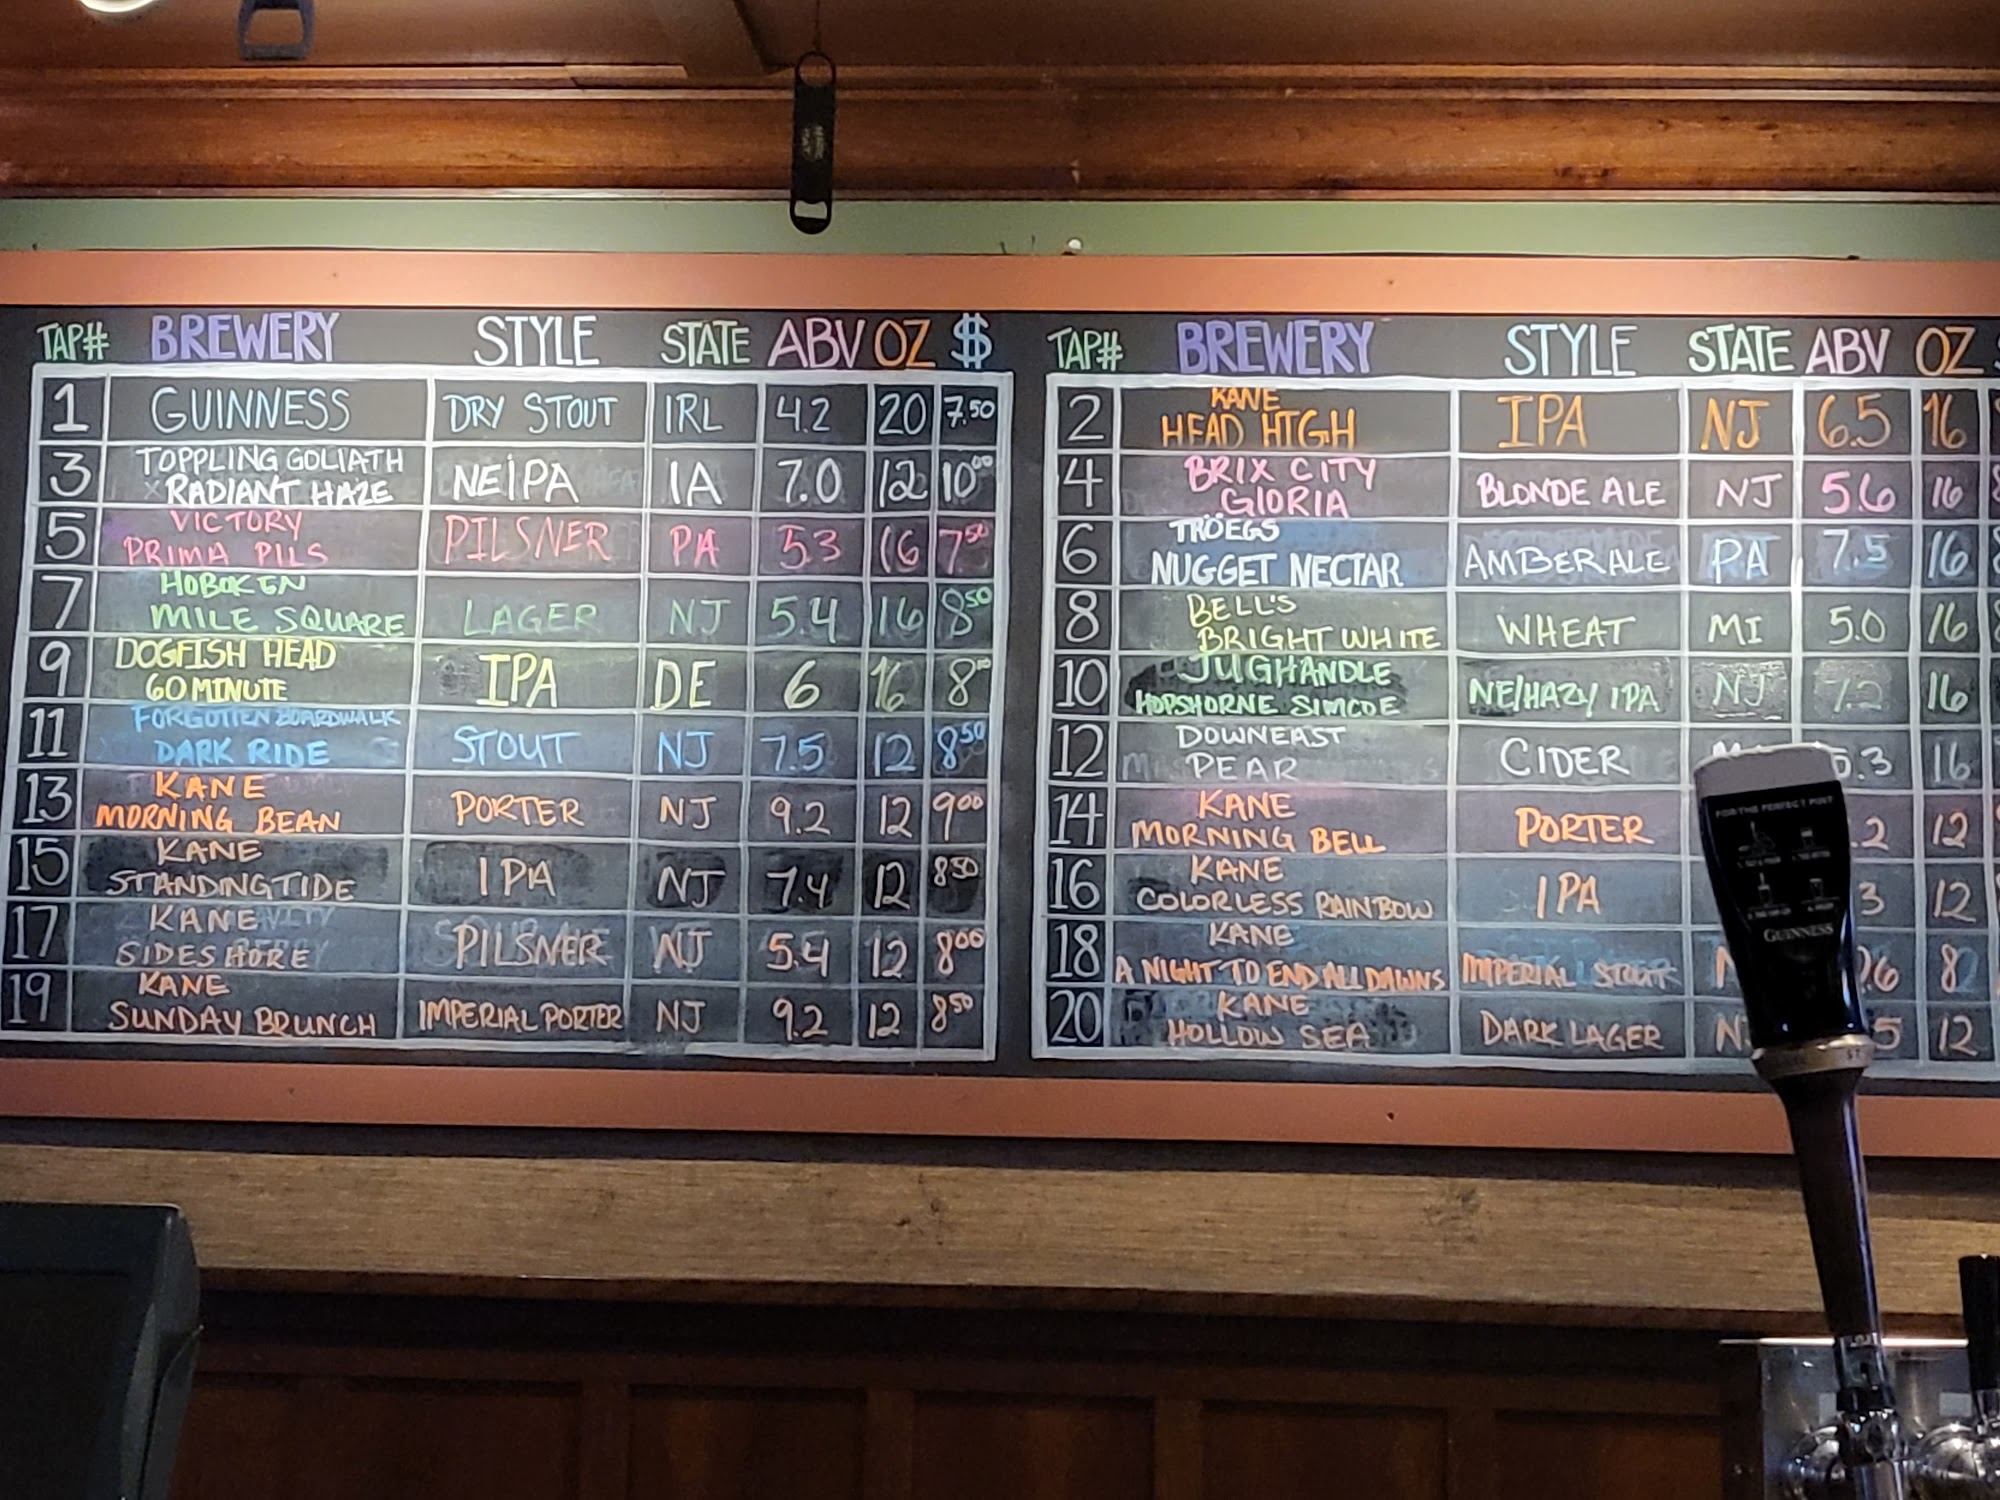 TAP# BREWERY STYLE STATE ABV OZ $
1 GUINNESS DRY STOUT IRL 4.2 20 7.50
3 TOPPLING GOLIATH
RADIANT HAZE NEIPA IA 7.0 12 10.00
5 VICTORY
PRIMA PILS PILSNER PA 5.3 16 7.50
7 HOBOKEN
MILE SQUARE LAGER NJ 5.4 16 8.50
9 DOGFISH HEAD
60 MINUTE IPA DE 6 16 8.00
11 FORGOTTEN BOARDWALK
DARK RIDE STOUT NJ 7.5 12 8.50
13 KANE
MORNING BEAN PORTER NJ 9.2 12 9.00
15 KANE
STANDING TIDE IPA NJ 7.4 12 8.50
17 KANE
SIDESHORE PILSNER NJ 5.4 12 8.00
19 KANE
SUNDAY BRUNCH IMPERIAL PORTER NJ 9.2 12 8.50
TAP# BREWERY STYLE STATE ABV OZ
2 KANE
HEAD HIGH IPA NJ 6.5 16
4 BRIX CITY
GLORIA BLONDE ALE NJ 5.6 16
6 TRÖEGS
NUGGET NECTAR AMBER ALE PA 7.5 16
8 BELL'S
BRIGHT WHITE WHEAT MI 5.0 16
10 JUGHANDLE
HOPSHORNE SIMCOE NE/HAZY IPA NJ 7.2 16
12 DOWNEAST
PEAR CIDER 5.3 16
14 KANE
MORNING BELL PORTER .2 12
16 KANE
COLORLESS RAINBOW IPA 3 12
18 KANE
A NIGHT TO END ALL DAWNS IMPERIAL STOUT 8
20 KANE
HOLLOW SEA DARK LAGER 5 12
FOR THE PERFECT PINT
GUINNESS